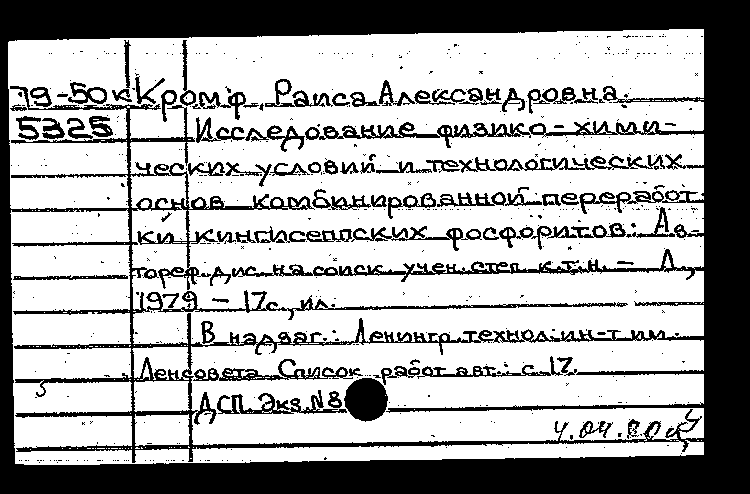 79-50к Кромф, Раиса Александровна.
5325 Исследование физико-хими-
ческих условий и технологических
основ комбинированной переработ-
ки кингисеппских фосфоритов: Ав-
тореф. дис. на соиск. учен. степ. к.т.н. – Л.,
1979 – 17с., ил.
В надзаг.: Ленингр. технол. ин-т им.
Ленсовета. Список работ авт.: с 17.
ДСП. Экз. №8
4.04.80